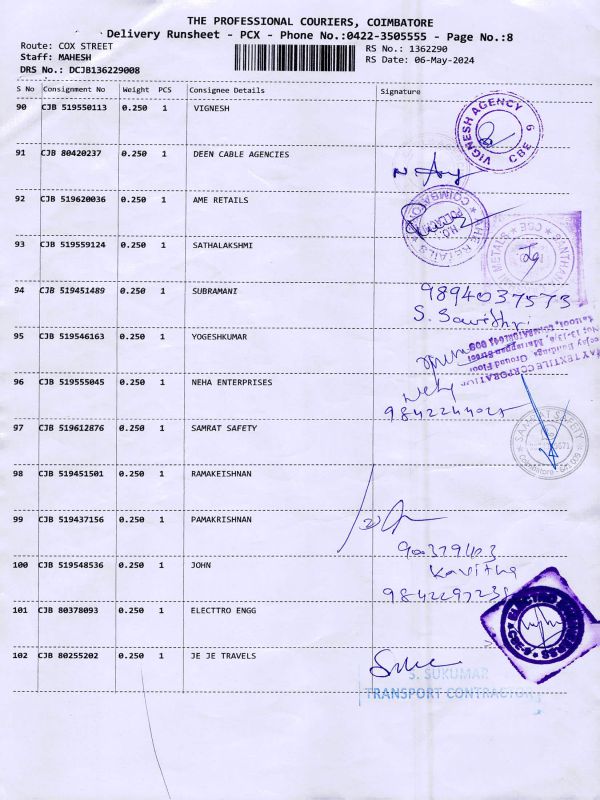 THE PROFESSIONAL COURIERS, COIMBATORE
Delivery Runsheet - PCX - Phone No.:0422-3505555 - Page No.:8
Route: COX STREET
RS No.: 1362290
Staff: MAHESH
RS Date: 06-May-2024
DRS No.: DCJB136229008
S No Consignment No Weight PCS Consignee Details Signature
90 CJB 519550113 0.250 1 VIGNESH
VIGNESH AGENCY
CBE 9
91 CJB 80420237 0.250 1 DEEN CABLE AGENCIES
92 CJB 519620036 0.250 1 AME RETAILS
COIMBATORE
93 CJB 519559124 0.250 1 SATHALAKSHMI
METALS CBE
94 CJB 519451489 0.250 1 SUBRAMANI
9894037573
S. Savithri
95 CJB 519546163 0.250 1 YOGESHKUMAR
TEXTILE CORPORATION
Ground Floor
96 CJB 519555045 0.250 1 NEHA ENTERPRISES
Neha
97 CJB 519612876 0.250 1 SAMRAT SAFETY
SAMRAT SAFETY
98 CJB 519451501 0.250 1 RAMAKEISHNAN
99 CJB 519437156 0.250 1 PAMAKRISHNAN
100 CJB 519548536 0.250 1 JOHN
Kavitha
101 CJB 80378093 0.250 1 ELECTTRO ENGG
102 CJB 80255202 0.250 1 JE JE TRAVELS
S. SUKUMAR
TRANSPORT CONTRACTORS